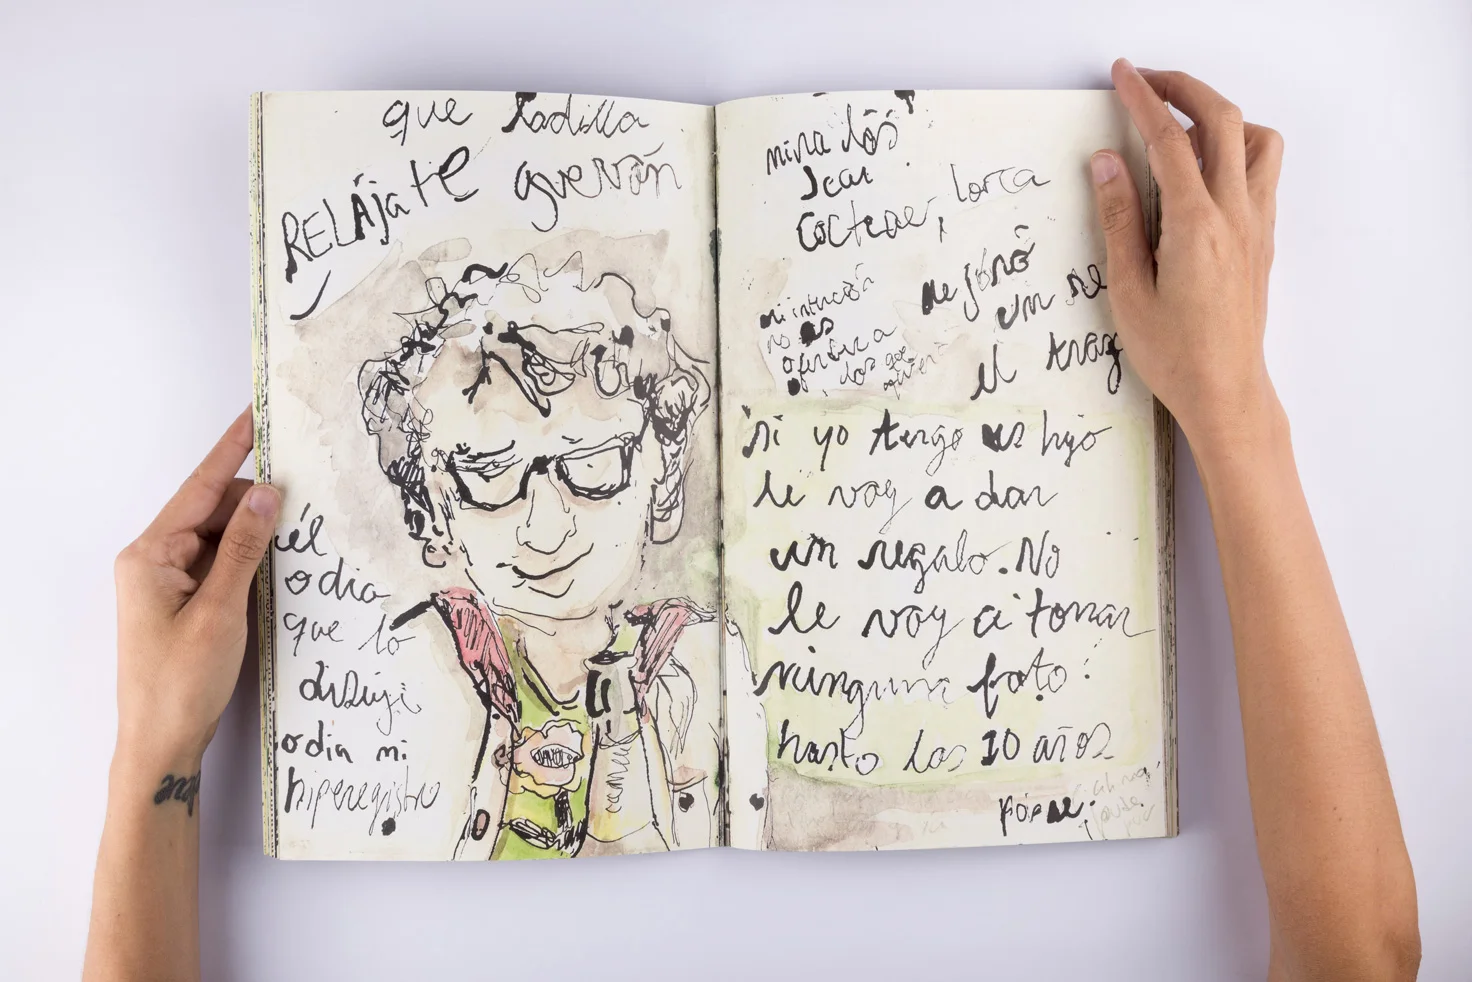 que ladilla
RELÁJATE güevón
él
odia
que lo
dibuje
odia mi
hiperegistro
mira los
Jean
Cocteau, Lorca
mejoró
un
el traz
mi intención
no es
ofender a
los que
si yo tengo un hijo
le voy a dar
un regalo. No
le voy a tomar
ninguna foto
hasta los 10 años